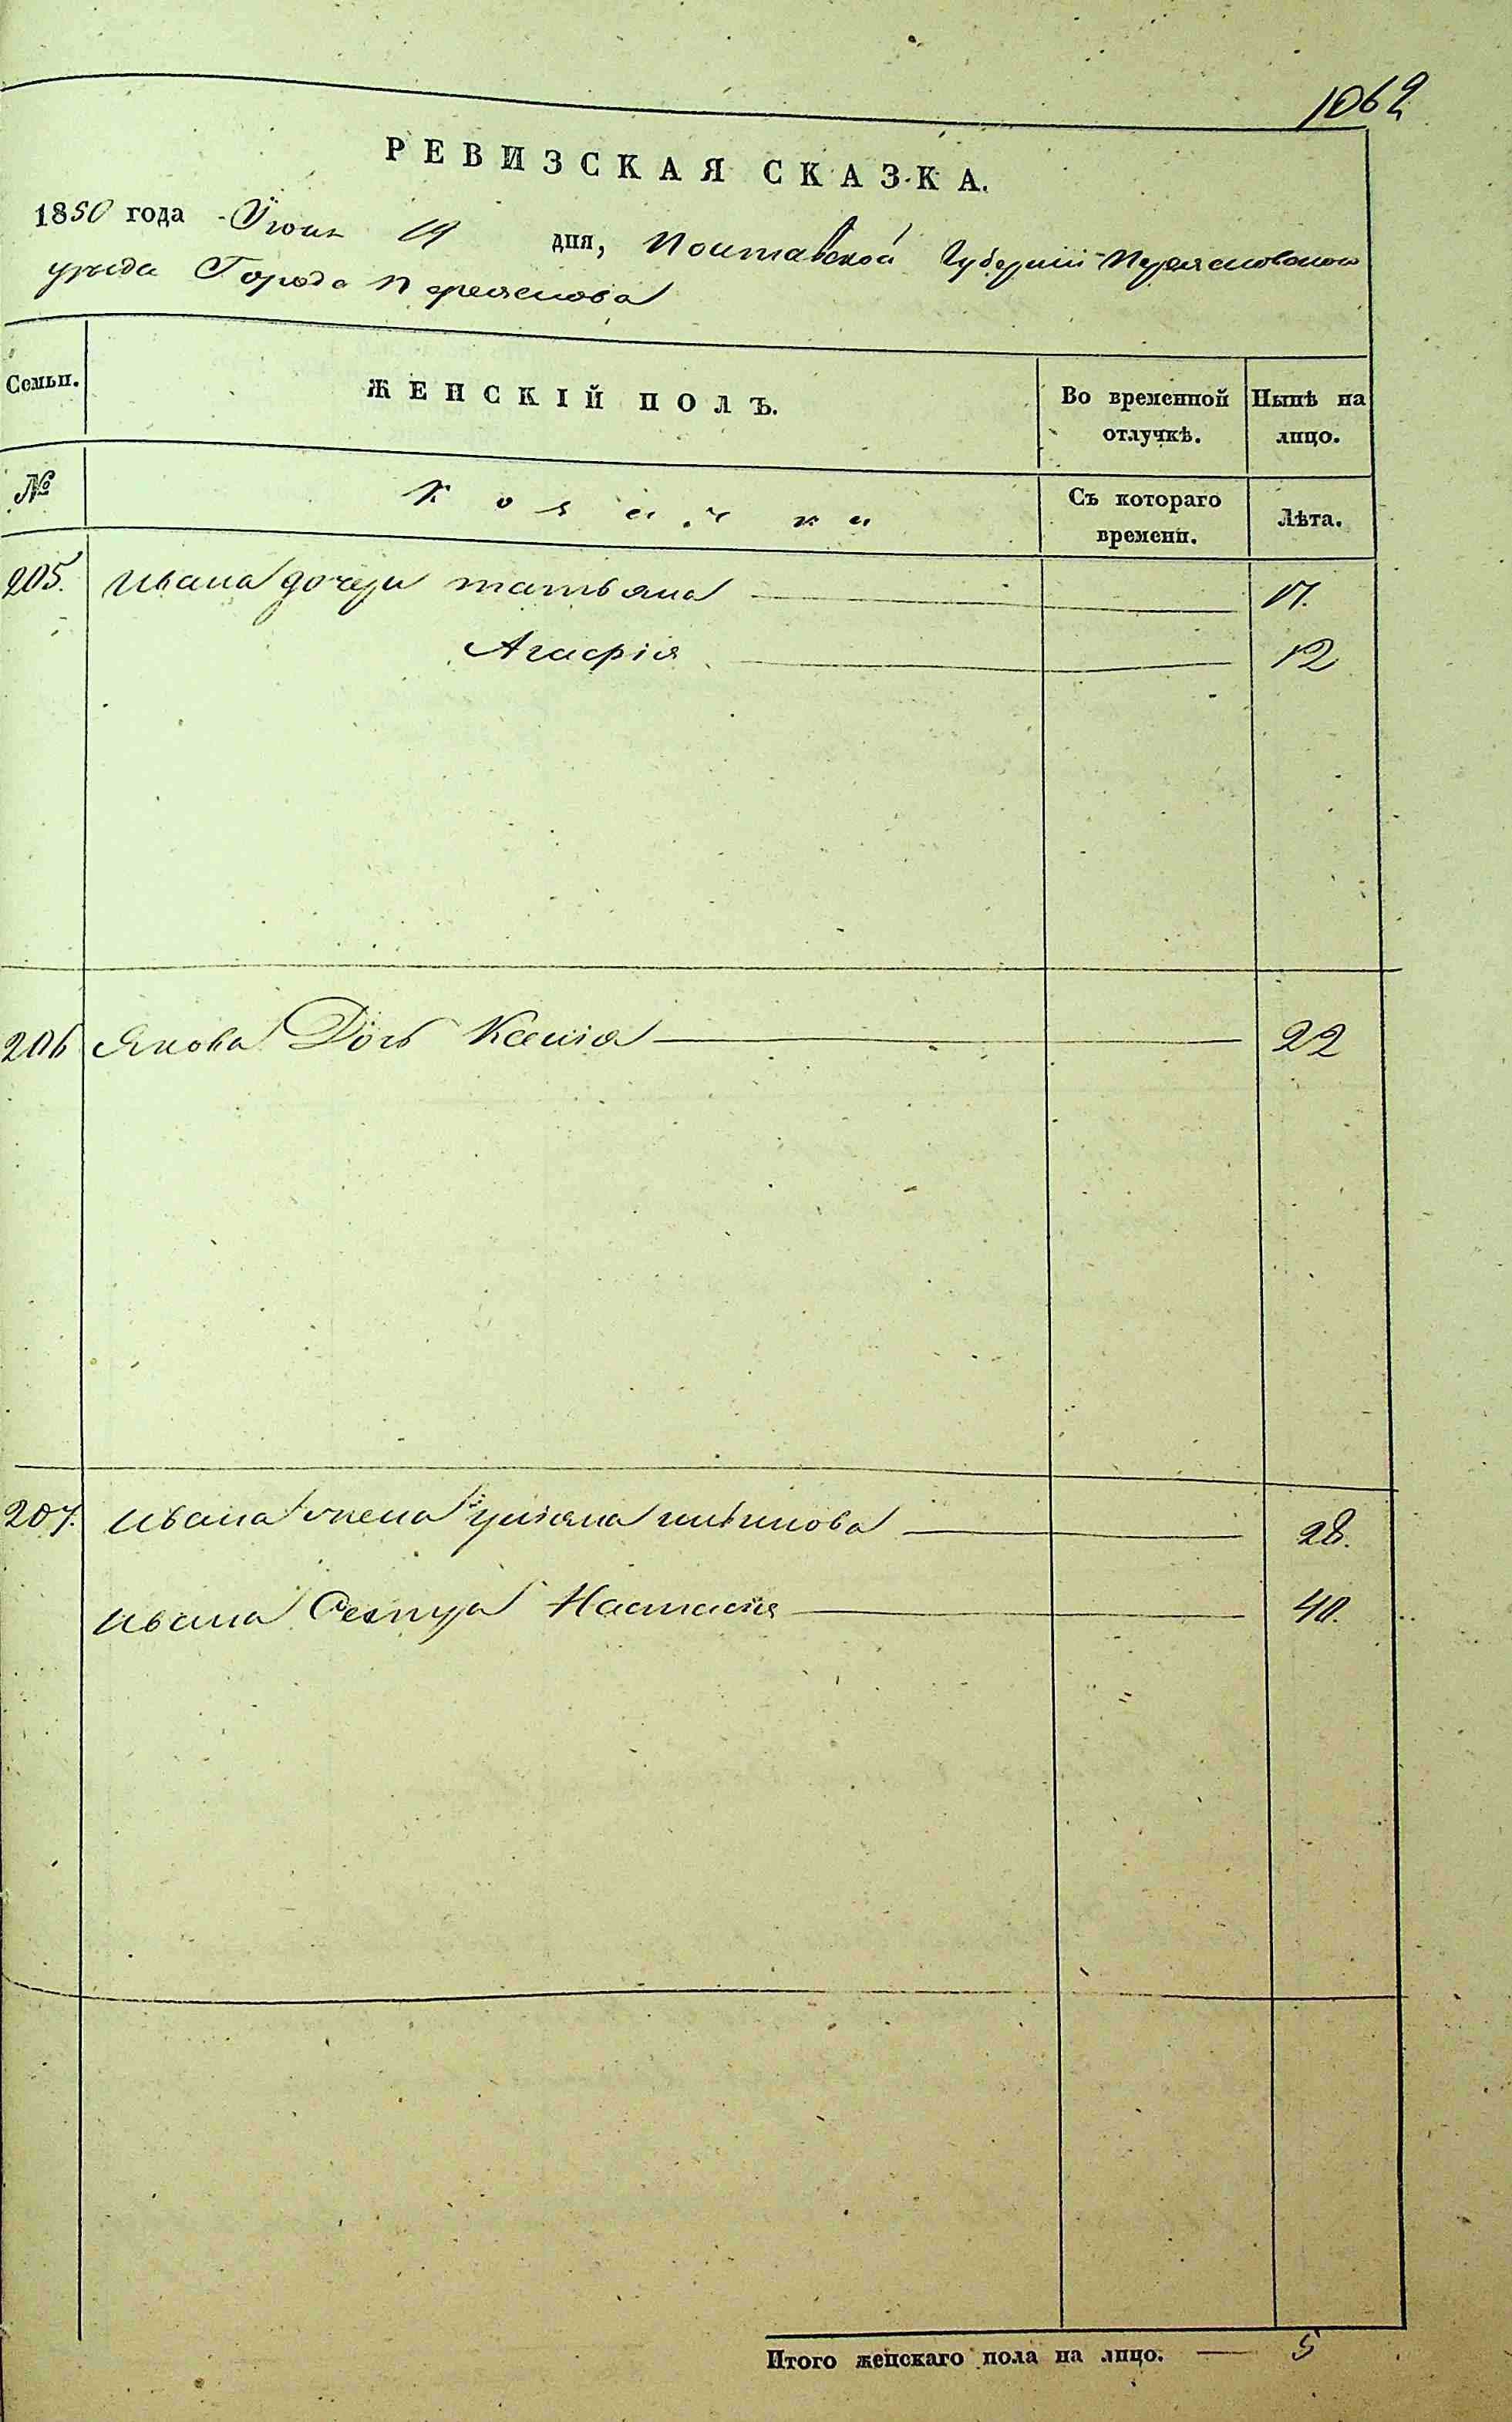 1062
РЕВИЗСКАЯ СКАЗКА.
1850 года Июня 19 дня, Полтавской Губернии Переяславского
уезда Города Переяслова
Семьи. ЖЕНСКІЙ ПОЛЪ. Во временной отлучкѣ. Нынѣ на лицо.
№ Козачки Съ котораго времени. Лѣта.
205. Ивана дочери татьяна 17.
Агафія 12
206 Якова Дочь Ксенія 22
207. Ивана жена уліяна 28.
Ивана Сестра Настасія 40.
Итого женскаго пола на лицо. — 5